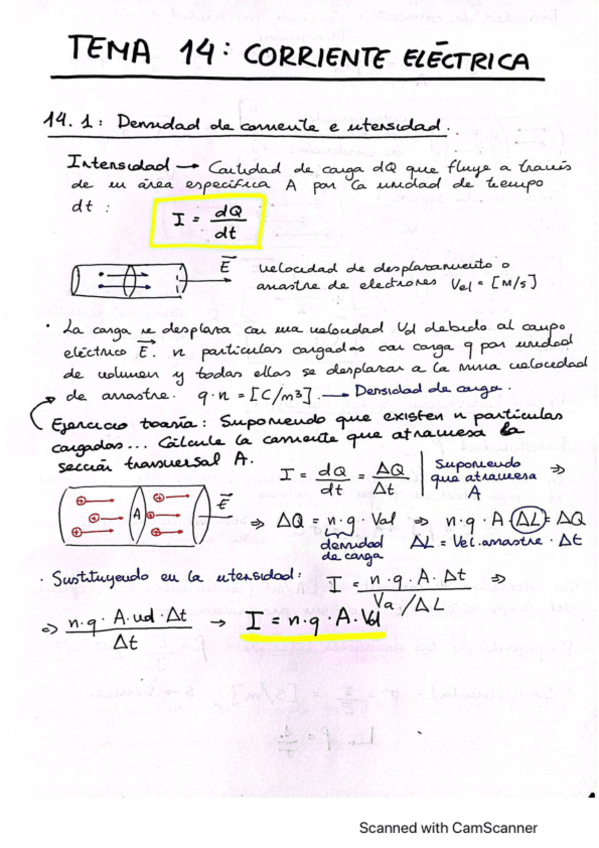 TEMA 14: CORRIENTE ELÉCTRICA
14.1: Densidad de corriente e intensidad.
Intensidad → Cantidad de carga dQ que fluye a través
de un área específica A por la unidad de tiempo
dt :
I = dQ/dt
E⃗
velocidad de desplazamiento o
arrastre de electrones Vel = [m/s]
· La carga se desplaza con una velocidad Vd debido al campo
eléctrico E⃗. n partículas cargadas con carga q por unidad
de volumen y todas ellas se desplazan a la misma velocidad
de arrastre. q·n = [C/m³]. → Densidad de carga.
Ejercicio teoría: Suponiendo que existen n partículas
cargadas... Cálcule la corriente que atraviesa la
sección transversal A.
I = dQ/dt = ΔQ/Δt
Suponiendo
que atraviesa ⇒
A
A
E⃗
⇒ ΔQ = n·q·Vol ⇒ n·q·A·ΔL = ΔQ
densidad
de carga
ΔL = Vel.arrastre · Δt
· Sustituyendo en la intensidad: I = n·q·A·Δt / Va/ΔL ⇒
⇒ n·q·A·vd·Δt / Δt → I = n·q·A·Vd
Scanned with CamScanner